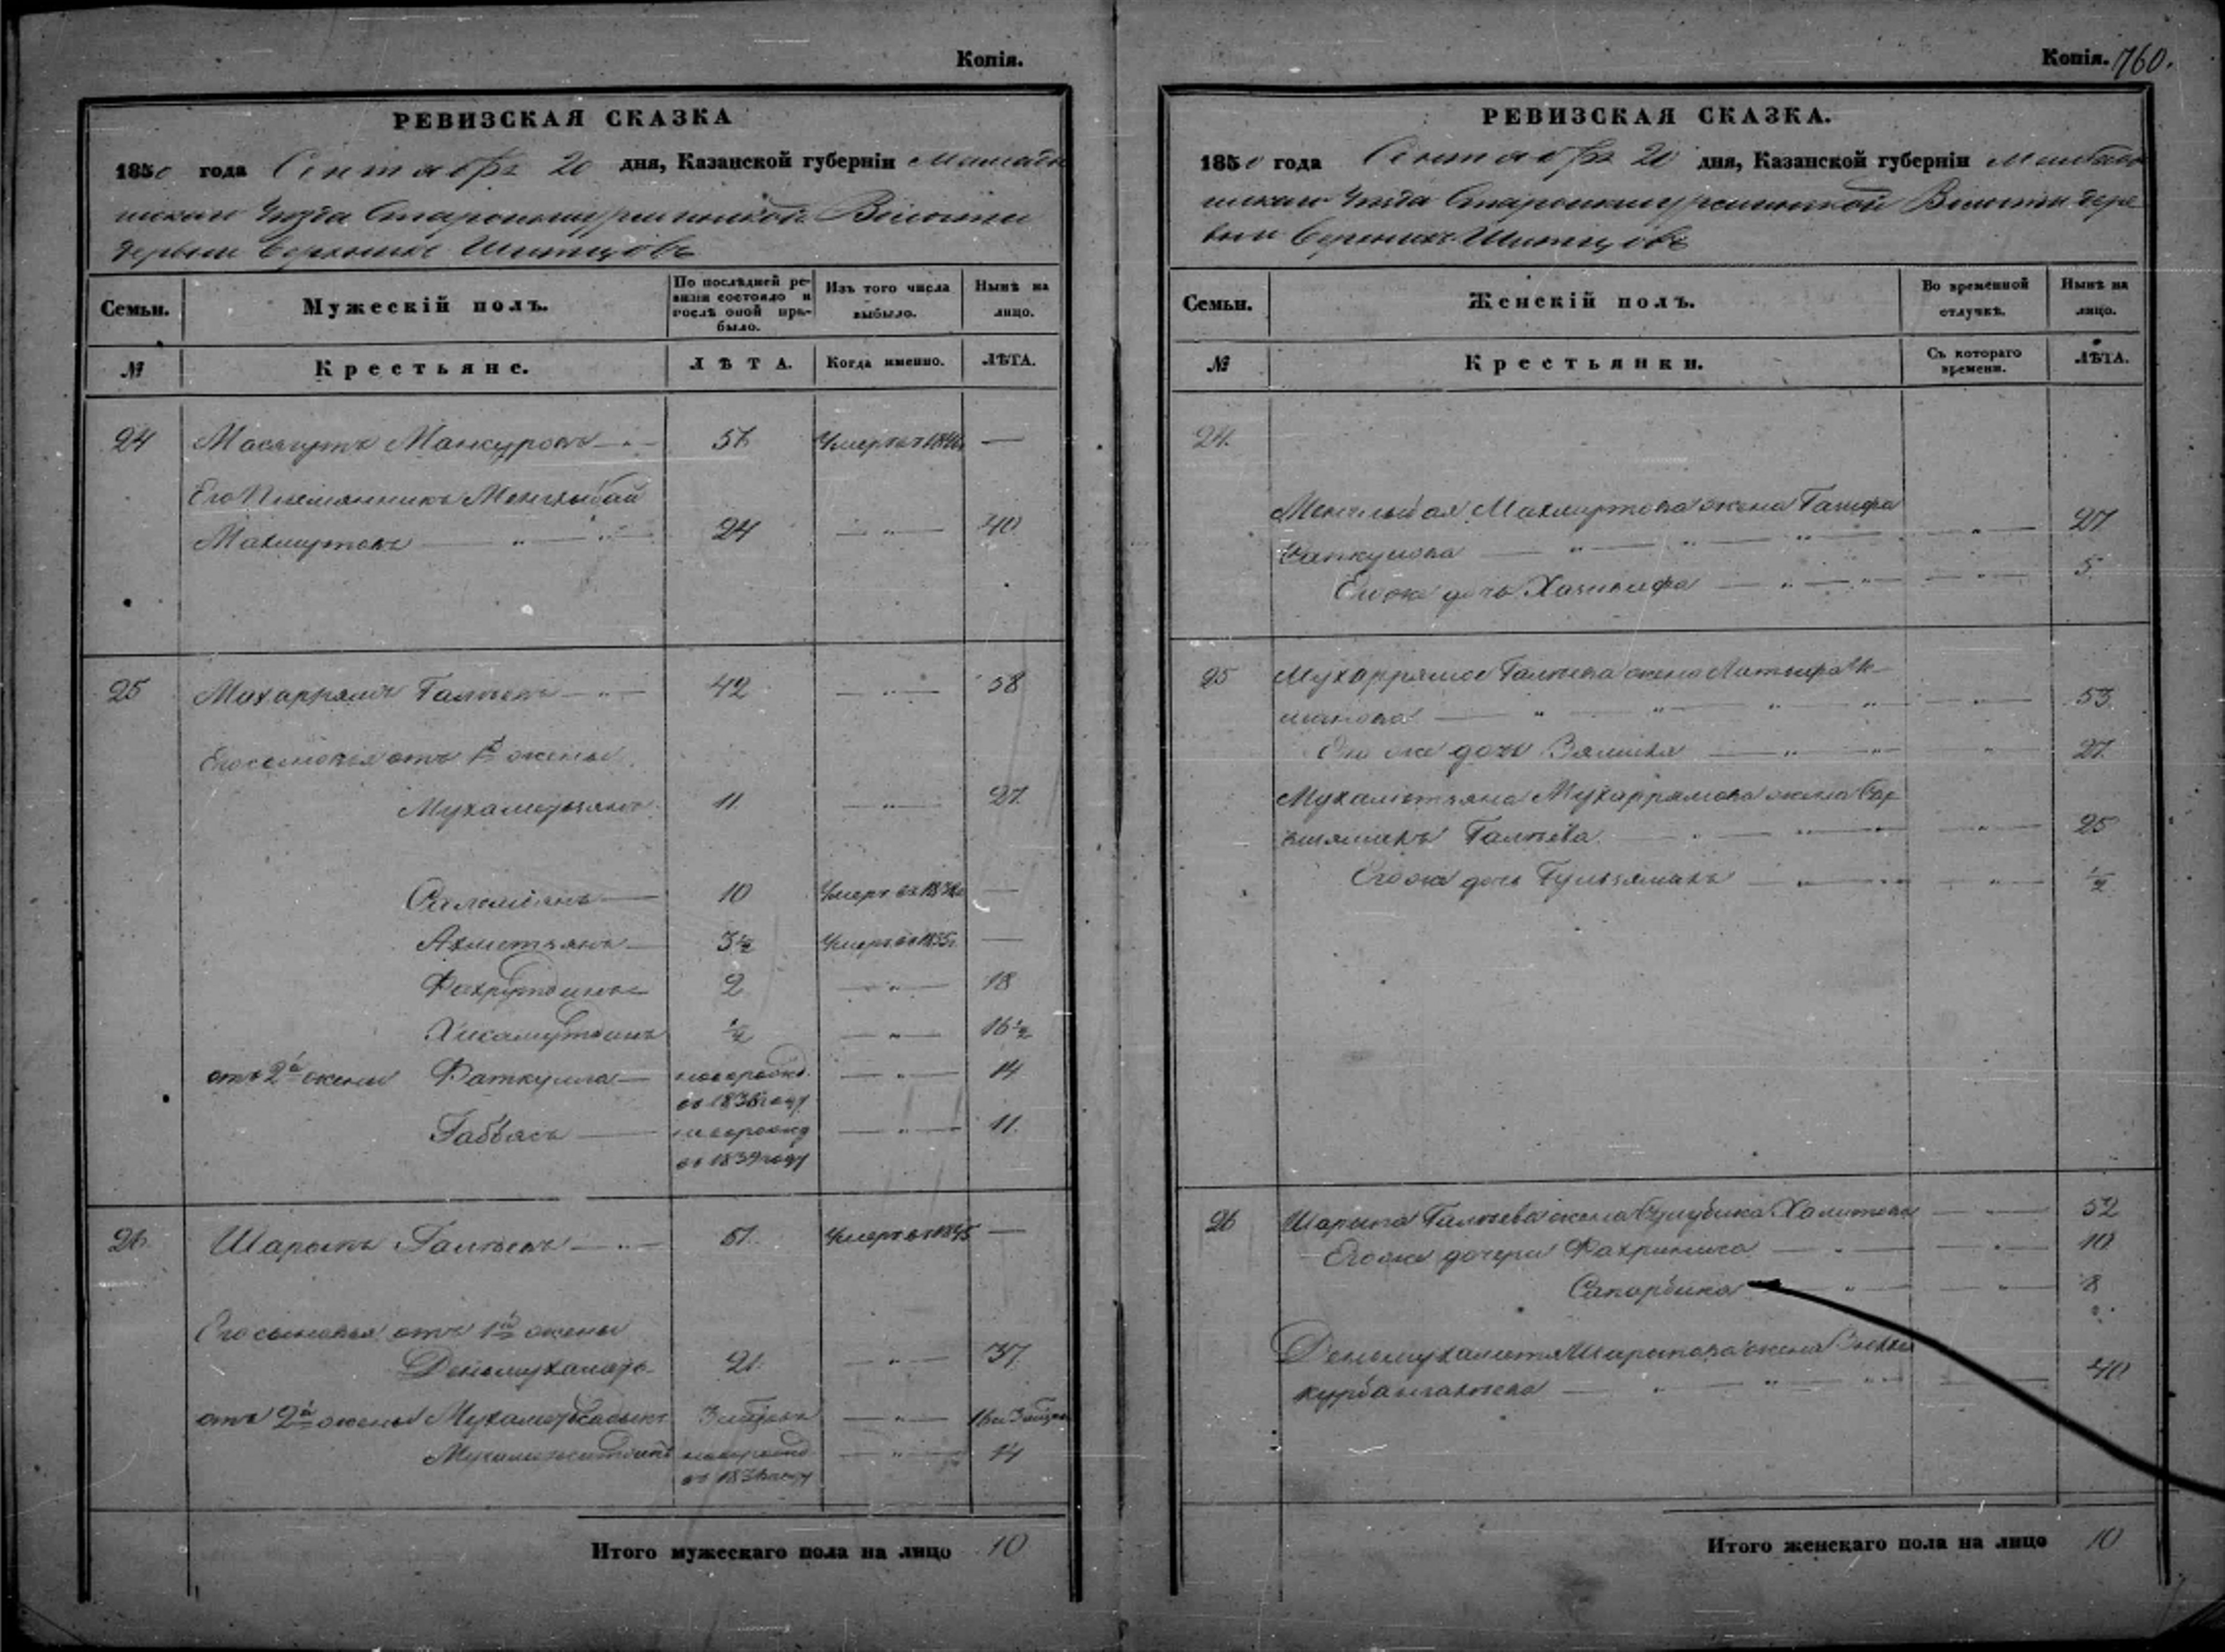 Копія.
РЕВИЗСКАЯ СКАЗКА
1850 года Сентября 20 дня, Казанской губерніи Мамады
шскаго Уѣзда Волости
деревни Верхнихъ Шитцовъ
Семьи.
Мужескій полъ.
По послѣдней ре-
визіи состояло и
послѣ оной при-
было.
Изъ того числа
выбыло.
Нынѣ на
лицо.
№
Крестьяне.
ЛѢТА.
Когда именно.
ЛѢТА.
24 Масягутъ Мансуровъ 57 Умеръ въ —
Его племянникъ Менглыбай
Махмутовъ 24 — „ — 40
25 Мухаррямъ Галѣевъ 42 — „ — 58
Его сыновья отъ 1й жены
Мухаметзянъ 11 — „ — 27
10 Умеръ въ —
Ахметзянъ 3½ Умеръ въ 1835г. —
Фахрутдинъ 2 — „ — 18
Хисамутдинъ ½ — „ — 16½
отъ 2й жены Фаткулла новорожд. — „ — 14
въ 1836 году
Габбасъ новорожд — „ — 11
въ 1839 году
26 Шарыпъ Галѣевъ 51 Умеръ въ 1845 —
Его сыновья отъ 1й жены
Деньмухаметъ 21 — „ — 37
отъ 2й жены Мухаметсадыкъ — „ —
новорожд — „ — 14
въ 1836 году
Итого мужескаго пола на лицо 10
Копія. 760.
РЕВИЗСКАЯ СКАЗКА.
1850 года Сентября 20 дня, Казанской губерніи Мамады
шскаго Уѣзда Волости дере
вни Верхнихъ Шитцовъ
Семьи.
Женскій полъ.
Во временной
отлучкѣ.
Нынѣ на
лицо.
№
Крестьянки.
Съ котораго
времени.
ЛѢТА.
24.
Менглыбая Махмутова жена
— „ — 27
Его же дочь — „ — 5
25 Мухарряма Галѣева жена Латыфа
— „ — 53
Его же дочь — „ — 27
Мухаметзяна Мухаррямова жена
Галѣева — „ — 25
Его же дочь Гульзямалъ — „ — ½
26 Шарыпа Галѣева жена Халитова — „ — 52
Его же дочери Фахриниса — „ — 10
Сапарбика — „ — 8
Деньмухаметя Шарыпова жена
Курбангалѣева 40
Итого женскаго пола на лицо 10